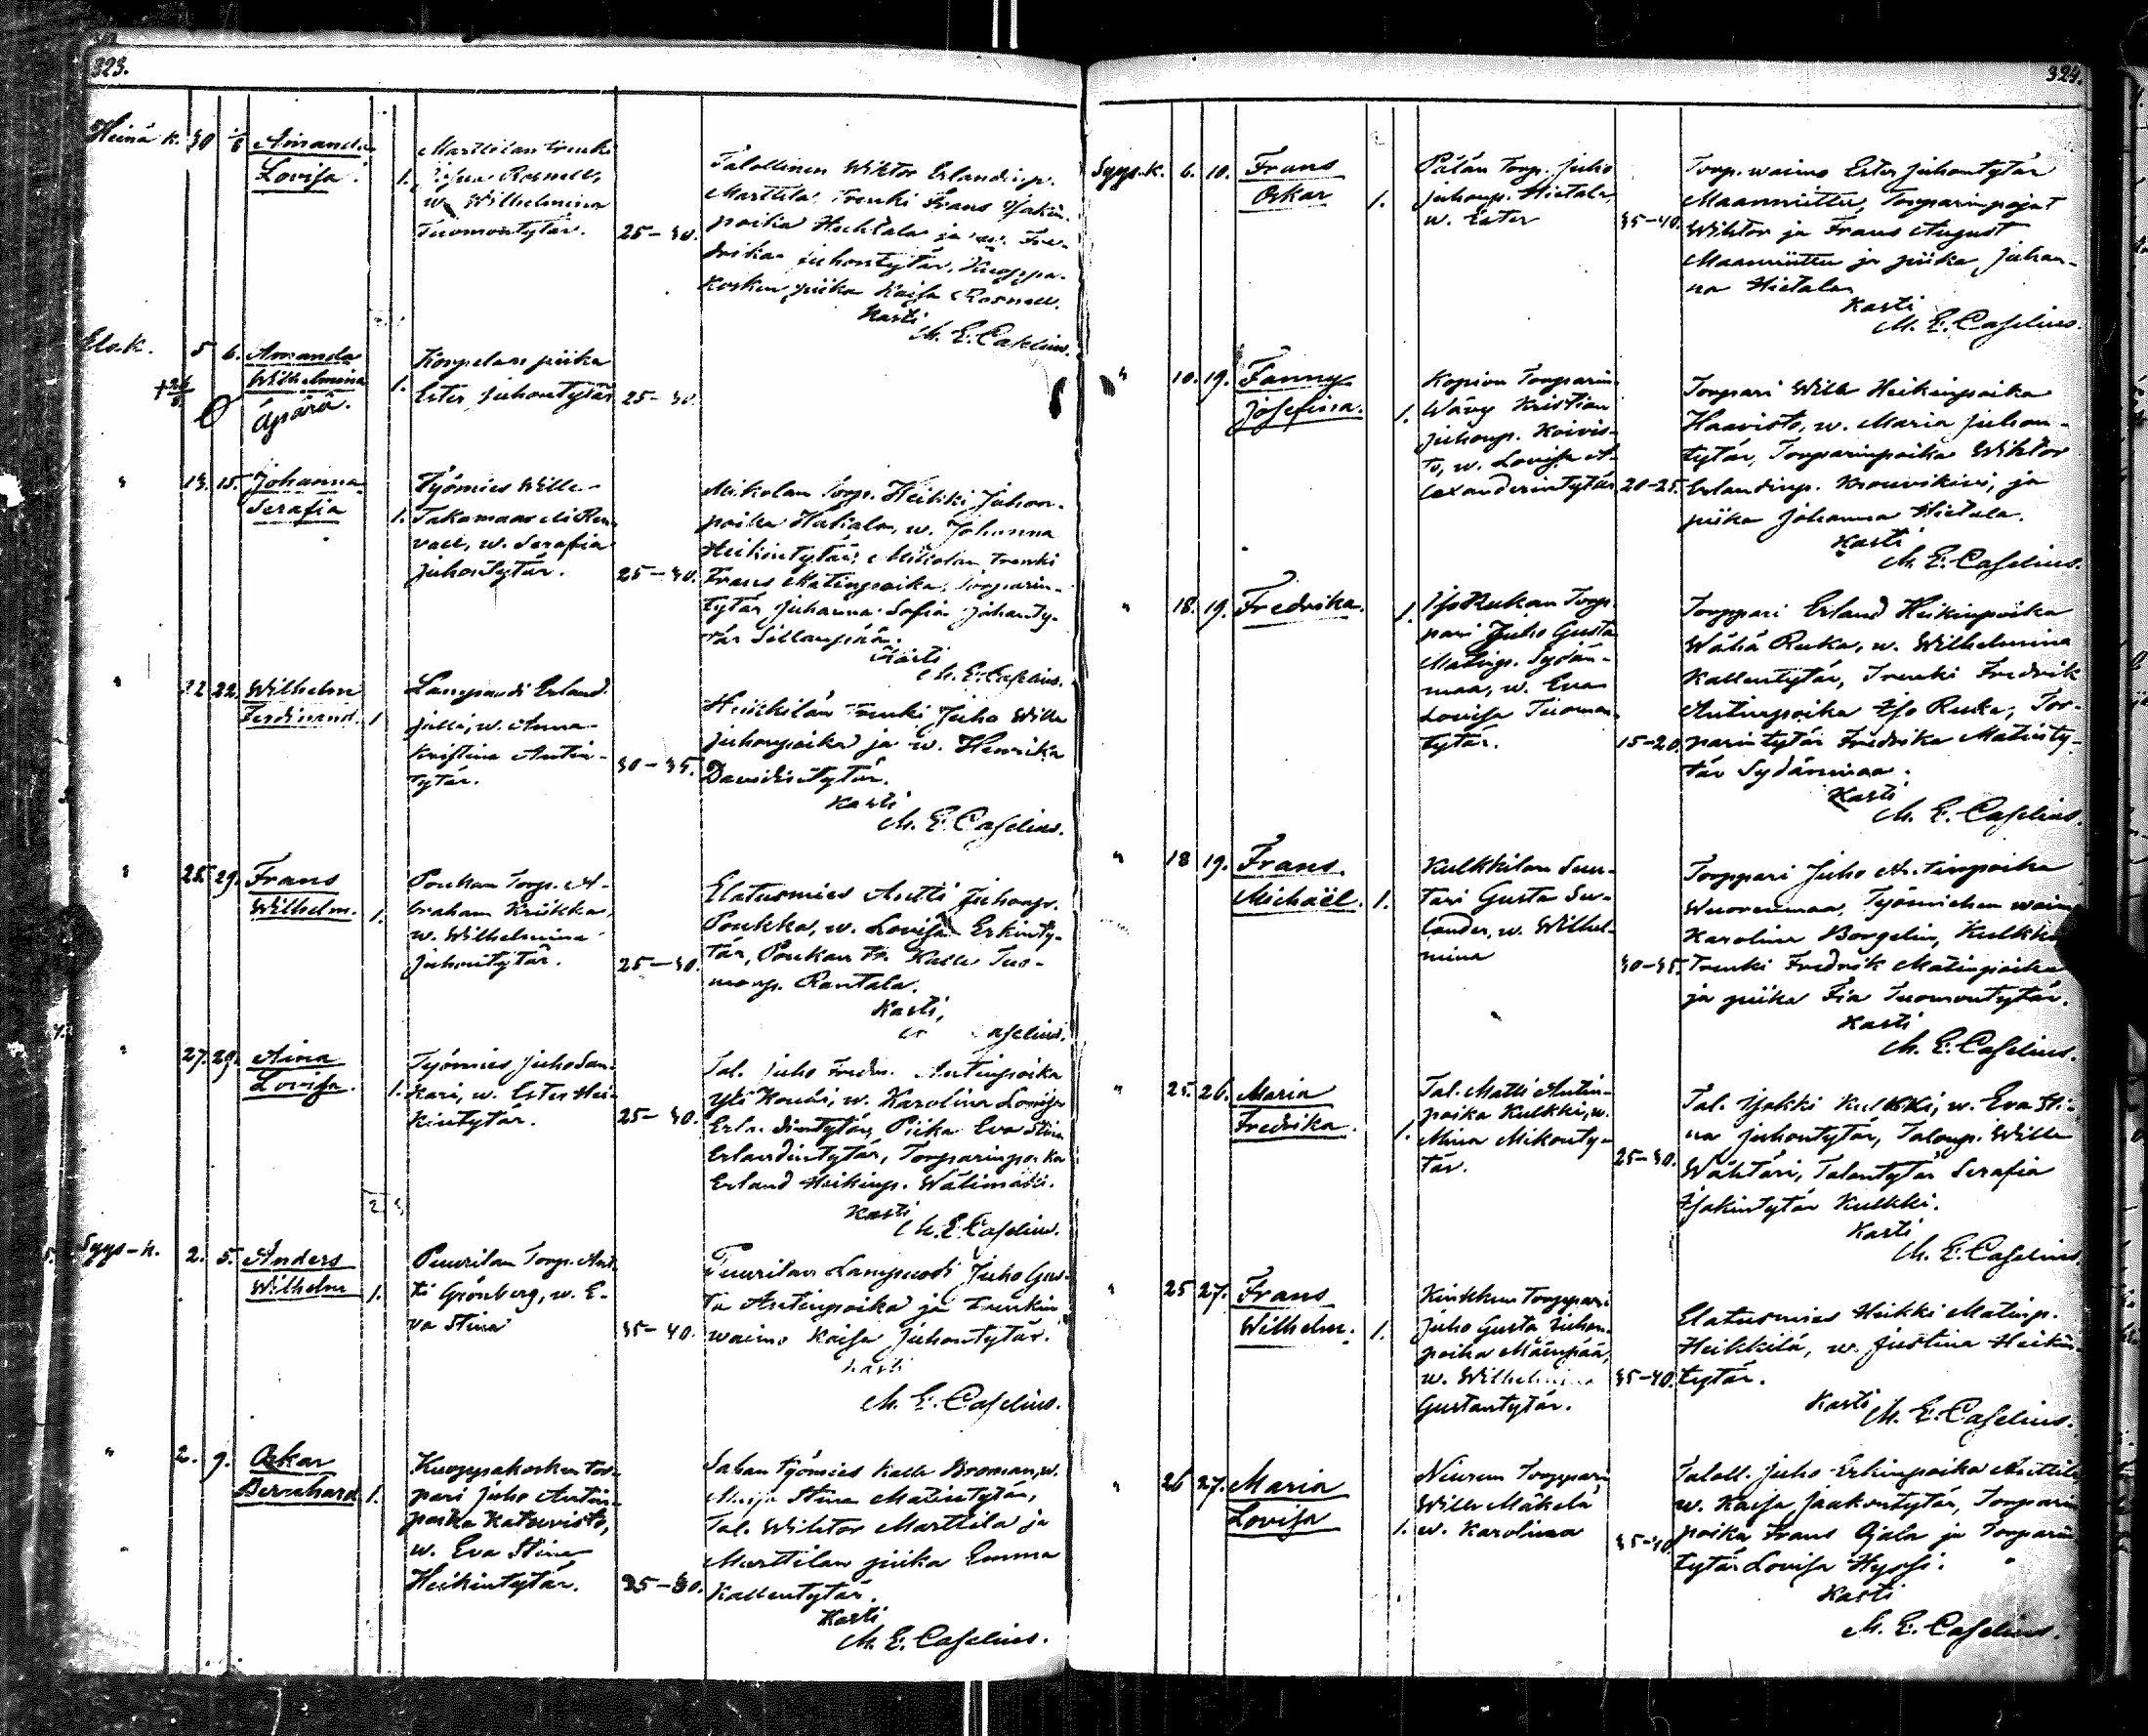 323.
Heinä k. 30 1/8 Amanda
Lovisa. 1.
Marttilan trenki
Rosnell,
w. Wilhelmina
Tuomontytär. 25-30.
Talollinen Wiktor Erlandinp.
Marttila, Trenki Frans Isakin
poika Huhtala ja w. Fre-
drika Juhontytär, Kuoppa-
kosken piika Kaisa Rosnell.
Kasti
M. E. Caselius.
Elo.k. 5 6. Amanda
Wilhelmina 1.
Äpärä.
Korpelan piika
Ester Juhontytär 25-30.
" 13. 15. Johanna
Serafia 1.
Työmies Wille
Takamaa
w. Serafia
Juhontytär. 25-30.
Mikolan Torp. Heikki Juhon-
poika Hatjala, w. Johanna
Heikintytär, Mikolan trenki
Frans Matinpoika, Torparin-
tytär Juhanna Sofia Juhonty-
tär Sillanpää.
Kasti
M. E. Caselius.
" 22 22. Wilhelm
Ferdinand. 1
Lampuodi Erland
Jülli, w. Anna
Kristina Antin-
tytär. 30-35.
Heikkilän trenki Juho Wille
Juhonpoika ja w. Henrika
Davidintytär.
Kasti
M. E. Caselius.
" 28. 29. Frans
Wilhelm. 1.
Poukan Torp. A-
braham Kriikka,
w. Wilhelmina
Juhontytär. 25-30.
Elatusmies Antti Juhonp.
Poukka, w. Lovisa Erkinty-
tär, Poukan tr. Kalle Tuo-
monp. Rantala.
Kasti,
Caselius.
" 27. 29. Aina
Lovisa. 1.
Työmies Juho San-
kari, w. Ester Hei-
kintytär. 25-30.
Tal. Juho Fredr. Antinpoika
Yli Kouhi, w. Karolina Lovisa
Erlandintytär, Piika Eva Stina
Erlandintytär, Torparinpoika
Erland Heikinp. Wälimäki.
Kasti
M. E. Caselius.
Syys-k. 2. 5. Anders
Wilhelm 1.
Puurilan Torp. Ant-
ti Grönberg, w. E-
va Stina 35-40.
Puurilan Lampuodi Juho Gus-
ta Antinpoika ja trenkin
waimo Kaisa Juhontytär.
Kasti
M. E. Caselius.
" 2. 9. Oskar
Bernhard 1.
Kuoppakosken tor-
pari Juho Antin-
poika Katavisto,
w. Eva Stina
Heikintytär. 25-30.
Sahan Työmies Kalle Broman, w.
Maija Stina Matintytär,
Tal. Wiktor Marttila ja
Marttilan piika Emma
Kallentytär.
Kasti
M. E. Caselius.
324.
Syys.k. 6. 10. Frans
Oskar 1.
Pälän Torp. Juho
Juhonp. Hietala,
w. Ester 35-40.
Torp. waimo Ester Juhontytär
Maanniittu, Torparinpojat
Wiktor ja Frans August
Maanniittu ja piika Juhan-
na Hietala.
Kasti
M. E. Caselius.
" 10. 19. Fanny
Josefina. 1.
Kopion Torparin
Wävy Kristian
Juhonp. Koivis-
to, w. Lovisa A-
lexanderintytär 20-25.
Torpari Wille Heikinpoika
Haavisto, w. Maria Juhon-
tytär, Torparinpoika Wiktor
Erlandinp. Krouvikivi, ja
piika Johanna Hietala.
Kasti
M. E. Caselius.
" 18. 19. Fredrika. 1.
Iso Rukan Torp-
pari Juho Gusta
Matinp. Sydän-
maa, w. Eva
Lovisa Tuomon-
tytär. 15-20.
Torppari Erland Heikinpoika
Wähä Ruka, w. Wilhelmina
Kallentytär, Trenki Fredrik
Antinpoika Iso Ruka, Tor-
parintytär Fredrika Matinty-
tär Sydänmaa.
Kasti
M. E. Caselius.
" 18 19. Frans
Michaël. 1.
Kulkkilan Suu-
tari Gusta Su-
lander, w. Wilhel-
mina 30-35.
Torppari Juho Antinpoika
Wuorenmaa, Työmiehen waim
Karolina Borgelin, Kulkki
Trenki Fredrik Matinpoika
ja piika Fia Tuomontytär.
Kasti
M. E. Caselius.
" 25. 26. Maria
Fredrika. 1.
Tal. Matti Antin-
poika Kulkki, w.
Mina Mikonty-
tär. 25-30.
Tal. Isakki Kulkki, w. Eva Sti-
na Juhontytär, Talonp. Wille
Wähtäri, Talontytär Serafia
Isakintytär Kulkki.
Kasti
M. E. Caselius.
" 25 27. Frans
Wilhelm. 1.
Kinkkun Torppari
Juho Gusta Juhon-
poika Mäenpää,
w. Wilhelmina
Gustantytär. 35-40.
Elatusmies Heikki Matinp.
Heikkilä, w. Justina Heikin-
tytär.
Kasti
M. E. Caselius.
" 26 27. Maria
Lovisa 1.
Niuren Torppari
Wille Mäkelä
w. Karolina 35-40.
Taloll. Juho Erkinpoika Anttila
w. Kaisa Jaakontytär, Torparin
poika Frans Ojala ja Torparin
tytär Lovisa Hyrssi.
Kasti
M. E. Caselius.